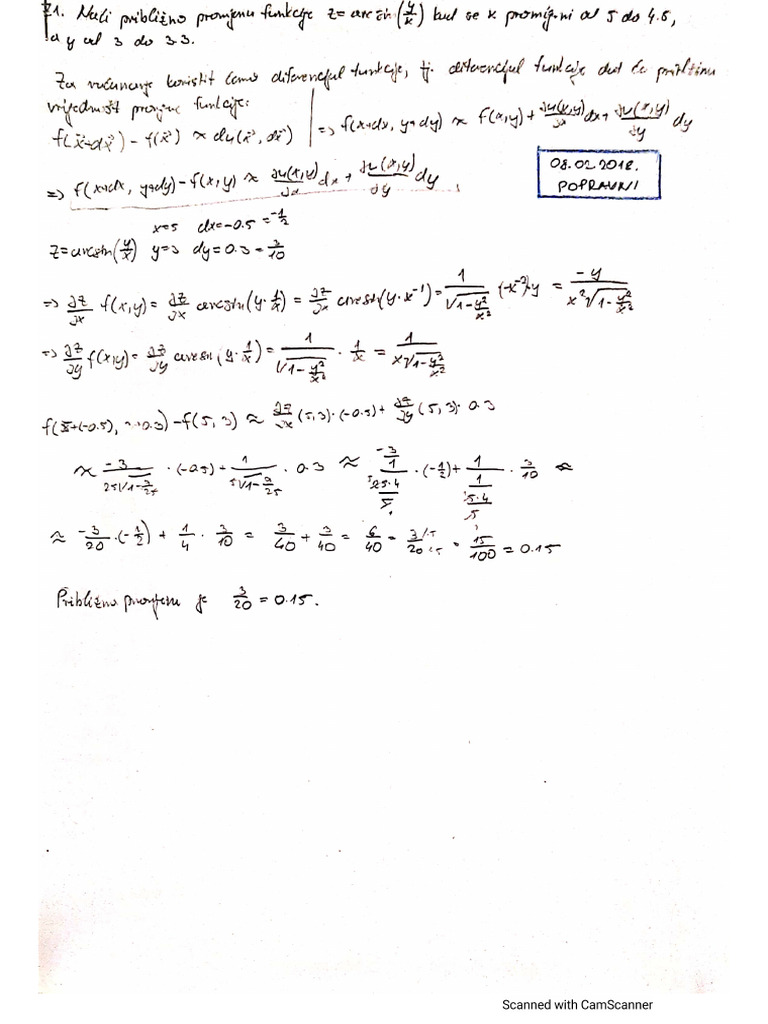 Z1. Naći približno promjenu funkcije z = arcsin(y/x) kad se x promijeni od 5 do 4.5,
a y od 3 do 3.3.
Za računanje koristit ćemo diferencijal funkcije, tj. diferencijal funkcije dat će približnu
vrijednost promjene funkcije:
f(x⃗+dx⃗) - f(x⃗) ≈ du(x⃗, dx⃗) | => f(x+dx, y+dy) ≈ f(x,y) + ∂u(x,y)/∂x dx + ∂u(x,y)/∂y dy
=> f(x+dx, y+dy) - f(x,y) ≈ ∂u(x,y)/∂x dx + ∂u(x,y)/∂y dy
08.02.2018.
POPRAVNI
x=5 dx=-0.5=-1/2
z=arcsin(y/x) y=3 dy=0.3=3/10
=> ∂z/∂x f(x,y) = ∂z/∂x arcsin(y·1/x) = ∂z/∂x arcsin(y·x⁻¹) = 1/√(1-y²/x²) · (-x⁻²)·y = -y/(x²√(1-y²/x²))
=> ∂z/∂y f(x,y) = ∂z/∂y arcsin(y·1/x) = 1/√(1-y²/x²) · 1/x = 1/(x√(1-y²/x²))
f(5+(-0.5), 3+0.3) - f(5,3) ≈ ∂z/∂x (5,3)·(-0.5) + ∂z/∂y (5,3)·0.3
≈ -3/(25√(1-9/25)) · (-0.5) + 1/(5√(1-9/25)) · 0.3 ≈ (-3/1)/(25·4/5) · (-1/2) + (1/1)/(5·4/5) · 3/10 ≈
≈ -3/20 · (-1/2) + 1/4 · 3/10 = 3/40 + 3/40 = 6/40 = 3/20 /·5/·5 = 15/100 = 0.15
Približna promjena je 3/20 = 0.15.
Scanned with CamScanner